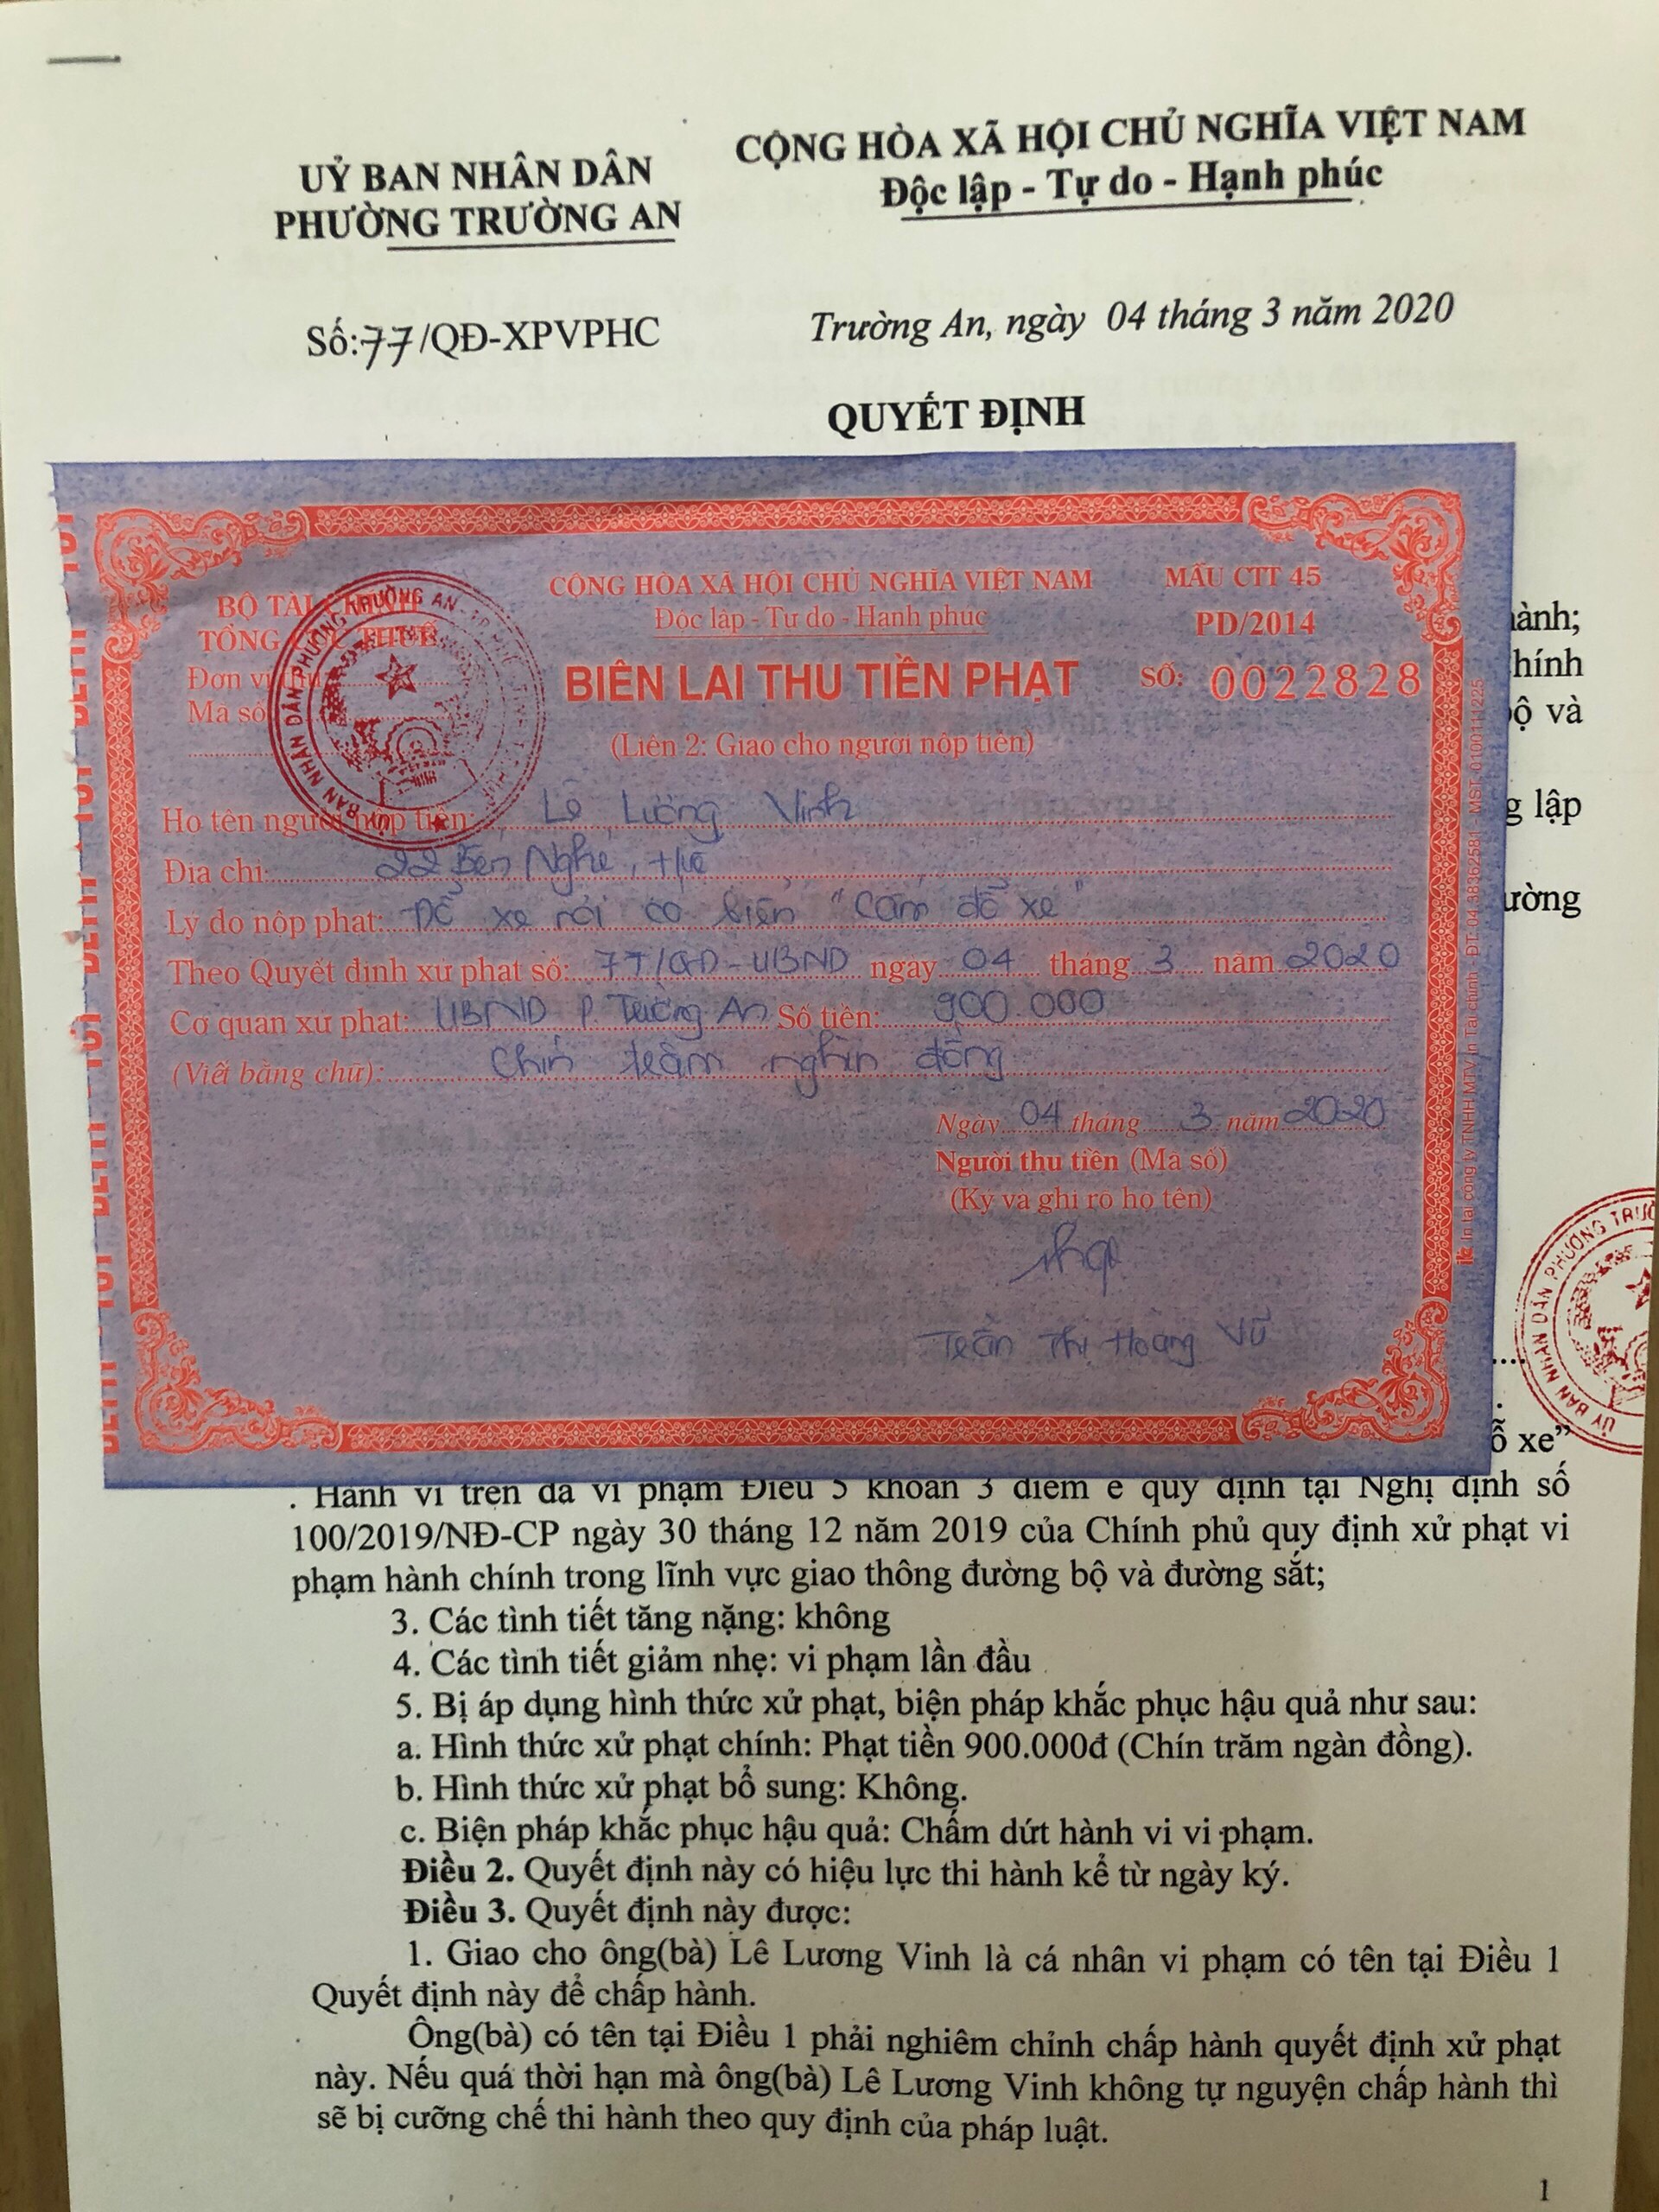 UỶ BAN NHÂN DÂN
PHƯỜNG TRƯỜNG AN
CỘNG HÒA XÃ HỘI CHỦ NGHĨA VIỆT NAM
Độc lập - Tự do - Hạnh phúc
Số:77/QĐ-XPVPHC
Trường An, ngày 04 tháng 3 năm 2020
QUYẾT ĐỊNH
BỘ TÀI CHÍNH
TỔNG CỤC THUẾ
Đơn vị thu:
Mã số:
CỘNG HÒA XÃ HỘI CHỦ NGHĨA VIỆT NAM
Độc lập - Tự do - Hạnh phúc
BIÊN LAI THU TIỀN PHẠT
(Liên 2: Giao cho người nộp tiền)
MẪU CTT 45
PD/2014
SỐ: 0022828
Họ tên người nộp tiền: Lê Lương Vinh
Địa chỉ: 22 Bến Nghé, Huế
Lý do nộp phạt: Đỗ xe nơi có biển "Cấm đỗ xe"
Theo Quyết định xử phạt số: 77/QĐ-UBND ngày 04 tháng 3 năm 2020
Cơ quan xử phạt: UBND P. Trường An Số tiền: 900.000
(Viết bằng chữ): Chín trăm nghìn đồng
Ngày 04 tháng 3 năm 2020
Người thu tiền (Mã số)
(Ký và ghi rõ họ tên)
Trần Thị Hoàng Vũ
In tại công ty TNHH MTV In Tài chính - ĐT: 04.38362581 - MST: 0100111225
ỦY BAN NHÂN DÂN PHƯỜNG TRƯỜNG AN
ành;
hính
ộ và
g lập
ường
ỦY BAN NHÂN DÂN PHƯỜNG TRƯỜ
ỗ xe”
. Hành vi trên đã vi phạm Điều 5 khoản 3 điểm e quy định tại Nghị định số
100/2019/NĐ-CP ngày 30 tháng 12 năm 2019 của Chính phủ quy định xử phạt vi
phạm hành chính trong lĩnh vực giao thông đường bộ và đường sắt;
3. Các tình tiết tăng nặng: không
4. Các tình tiết giảm nhẹ: vi phạm lần đầu
5. Bị áp dụng hình thức xử phạt, biện pháp khắc phục hậu quả như sau:
a. Hình thức xử phạt chính: Phạt tiền 900.000đ (Chín trăm ngàn đồng).
b. Hình thức xử phạt bổ sung: Không.
c. Biện pháp khắc phục hậu quả: Chấm dứt hành vi vi phạm.
Điều 2. Quyết định này có hiệu lực thi hành kể từ ngày ký.
Điều 3. Quyết định này được:
1. Giao cho ông(bà) Lê Lương Vinh là cá nhân vi phạm có tên tại Điều 1
Quyết định này để chấp hành.
Ông(bà) có tên tại Điều 1 phải nghiêm chỉnh chấp hành quyết định xử phạt
này. Nếu quá thời hạn mà ông(bà) Lê Lương Vinh không tự nguyện chấp hành thì
sẽ bị cưỡng chế thi hành theo quy định của pháp luật.
1